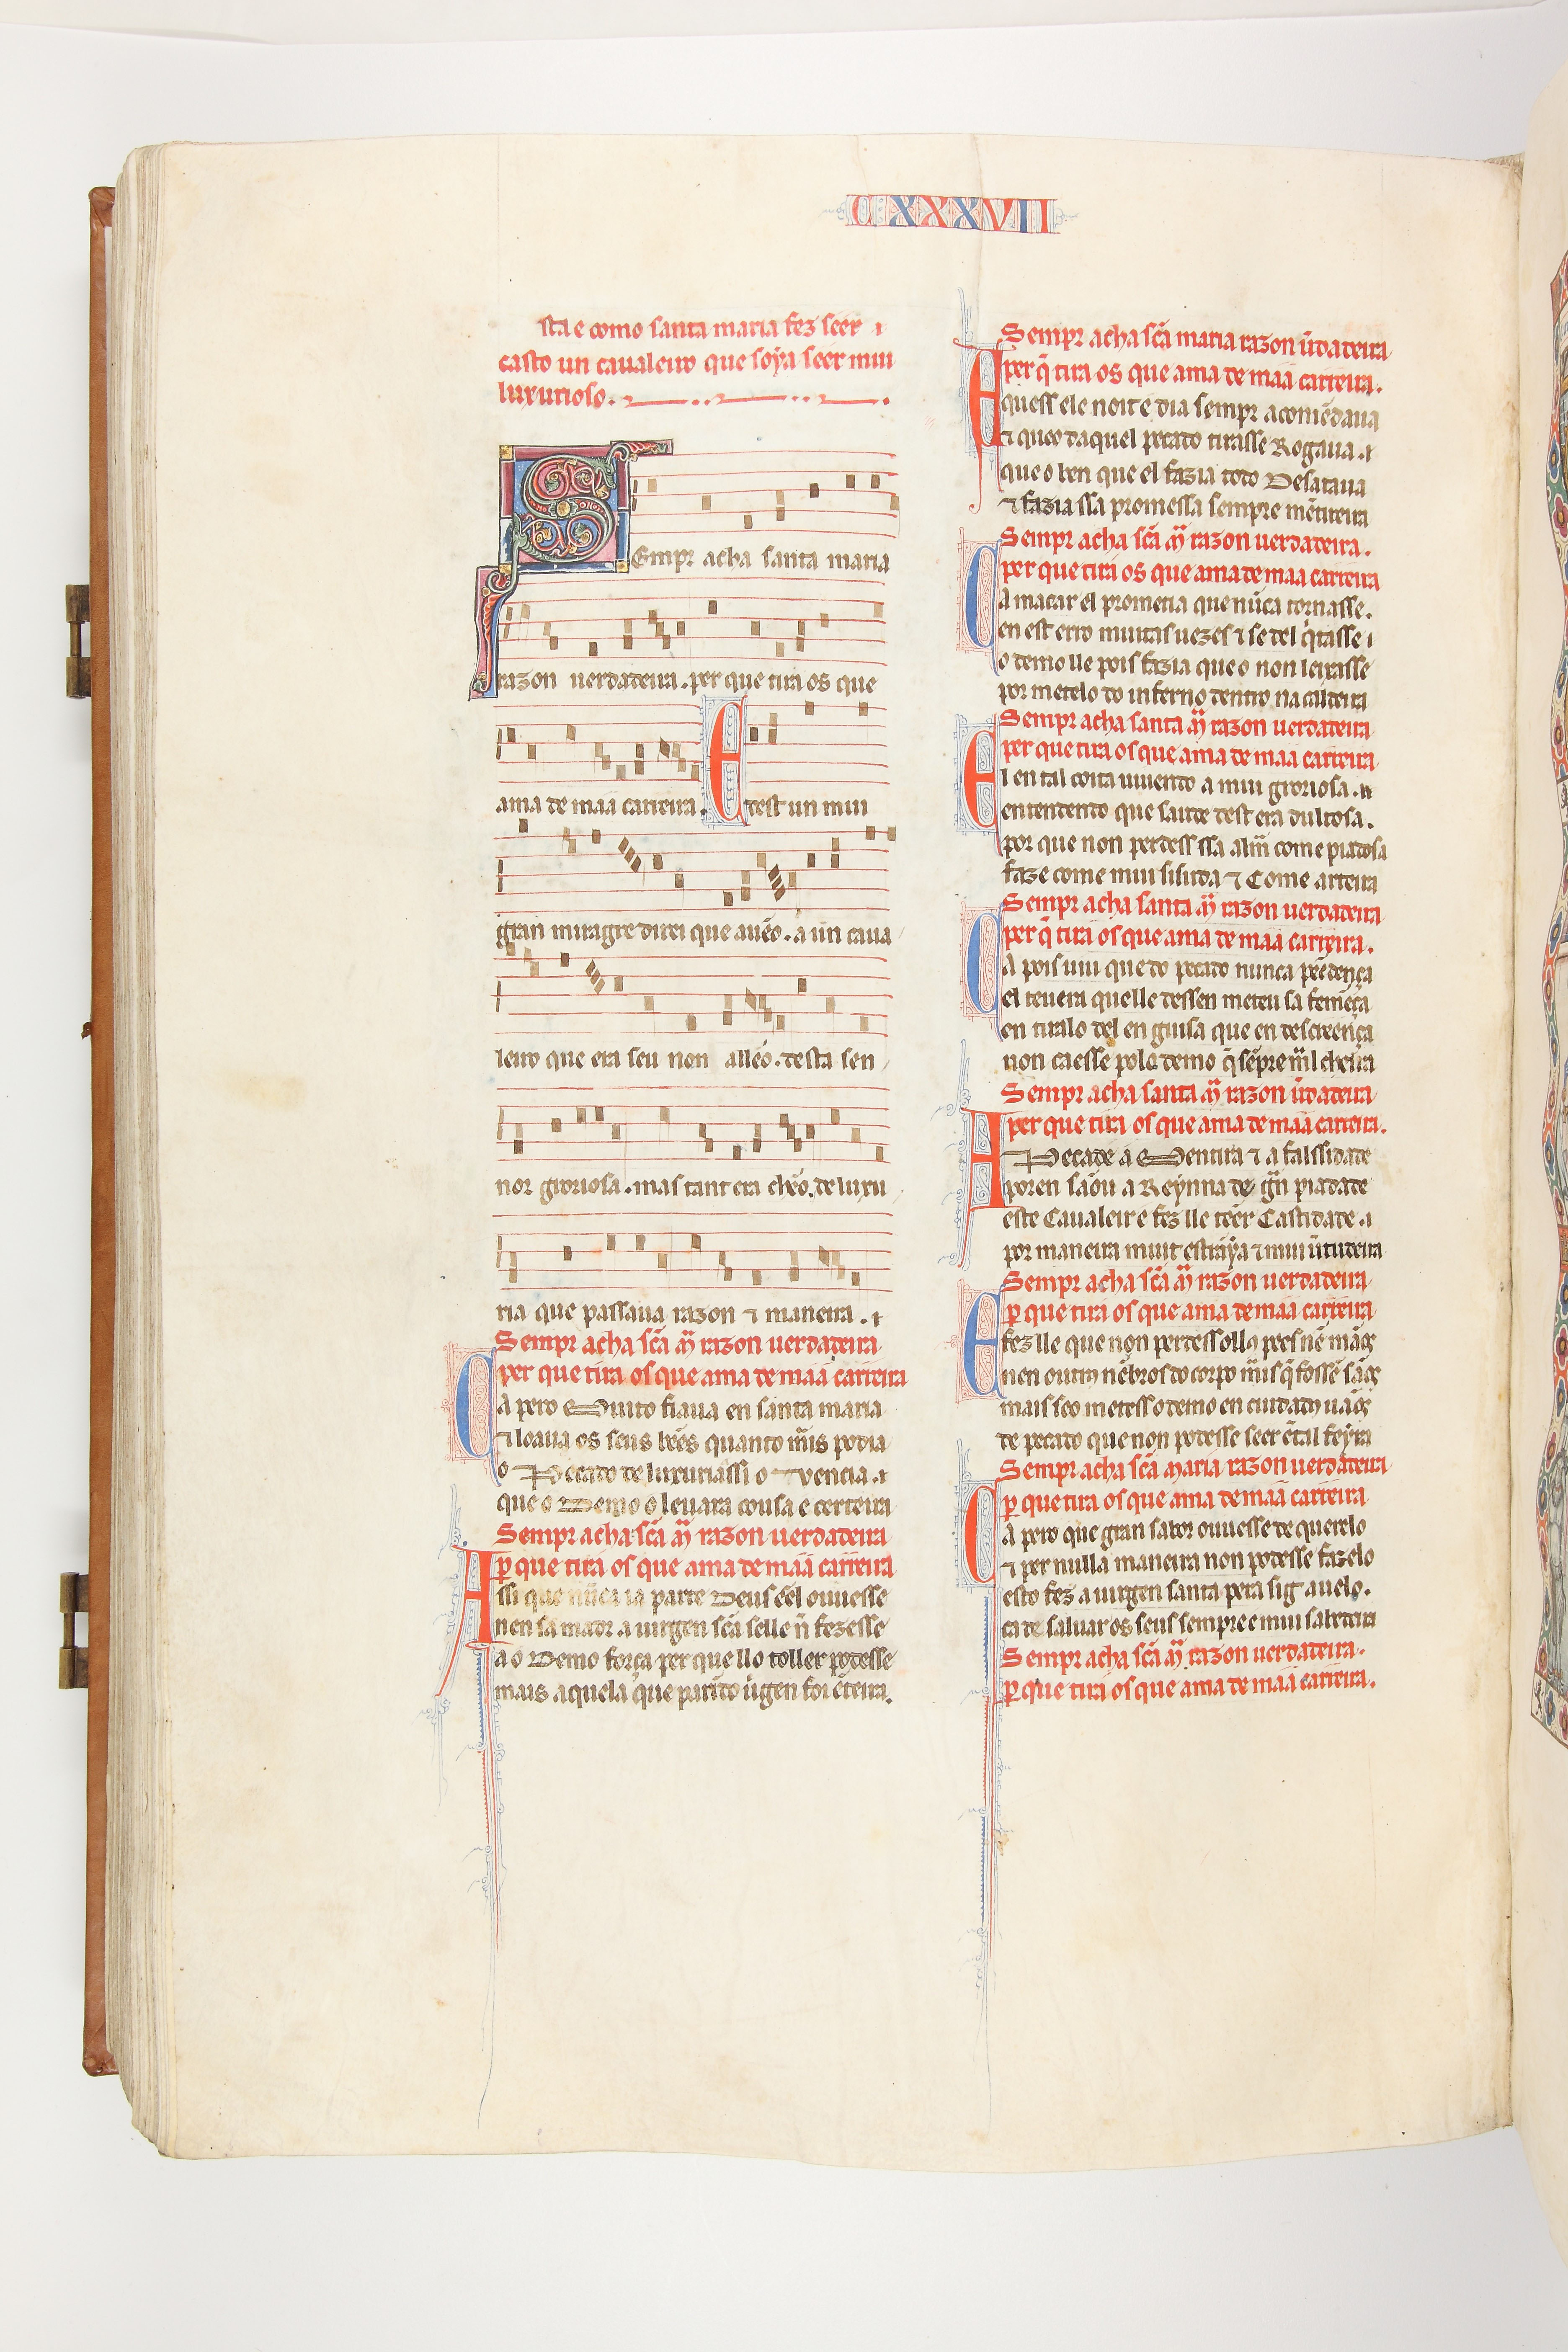 CXXXVII
sta e como santa maria fez seer
casto un caualeiro que soya seer mui
luxurioso.
SEmpr acha santa maria
razon uerdadeira. per que tira os que
ama de maa carreira. E dest un mui
gran miragre direi que auẽo. a un caua
leiro que era seu non allẽo. desta sen
nor groriosa. mas tant era chẽo. de luxu
ria que passaua razon ⁊ maneira.
Sempr acha scã mͣ razon uerdadeira
per que tira os que ama de maa carreira
Ca pero Muito fiaua en santa maria
⁊ loaua os seus bẽes quanto mͣis podia
o Pecado de luxuria assi o Vencia.
que o Demo o leuara cousa e certeira
Sempr acha scã mͣ razon uerdadeira
ꝑ que tira os que ama de maa carreira
Assi que nũca ia parte Deus eel ouuesse
nen sa madr a uirgen scã selle ñ fezesse
a o Demo força per que llo toller podesse
mais aquela que parido ũgen foi ẽteira.
Sempr acha scã maria razon ũdadeira
per q̃ tira os que ama de maa carreira.
A quess ele noit e dia sempr acomẽdaua
⁊ queo daquel pecado tirasse Rogaua.
que o ben que el fazia todo Desataua
⁊ fazia ssa promessa sempre mẽtireira
Sempr acha scã mͣ razon uerdadeira.
per que tira os que ama de maa carreira
Ca macar el prometia que nũca tornasse.
en est erro muitas uezes ⁊ se del q̇tasse
o demo lle pois fazia que o non leixasse
por metelo do inferno dentro na caldeira
Sempr acha santa mͣ razon uerdadeira
per que tira os que ama de maa carreira
El en tal coita uiuendo a mui groriosa.
entendendo que saude dest era dultosa.
por que non perdess ssa almͣ come piadosa
faze come mui sisuda ⁊ Come arteira
Sempr acha santa mͣ razon uerdadeira
per q̃ tira os que ama de maa carreira.
Ca pois uiu que do pecado nunca pẽedença
el teuera quelle dessen meteu sa femẽça
en tiralo del en guisa que en descreença
non caesse polo demo q̃ sẽpre mͣl cheira
Sempr acha santa mͣ razon ũdadeira
per que tira os que ama de maa carreira.
A Pecade a Mentira ⁊ a falssidade
poren sãou a Reynna de grͣn piadade
este Caualeir e fez lle teer Castidade.
por maneira muit estrãya ⁊ mui ũtudeira
Sempr acha scã mͣ razon uerdadeira
ꝑ que tira os que ama de maa carreira
E fez lle que non perdess ollos pees nẽ mãos
nen outros nẽbros do corpo mͣis q̃ fossẽ sãos
mais seo metess o demo en cuidados uãos
de pecado que non podesse seer ẽ tal feyra
Sempr acha scã maria razon uerdadeira
ꝑ que tira os que ama de maa carreira
Ca pero que gran sabor ouuesse de querelo
⁊ per nulla maneira non podesse fazelo
esto fez a uirgen santa pera sig auelo.
ca de saluar os seus sempre e mui sabedeira
Sempr acha scã mͣ razon uerdadeira.
ꝑ que tira os que ama de maa carreira.